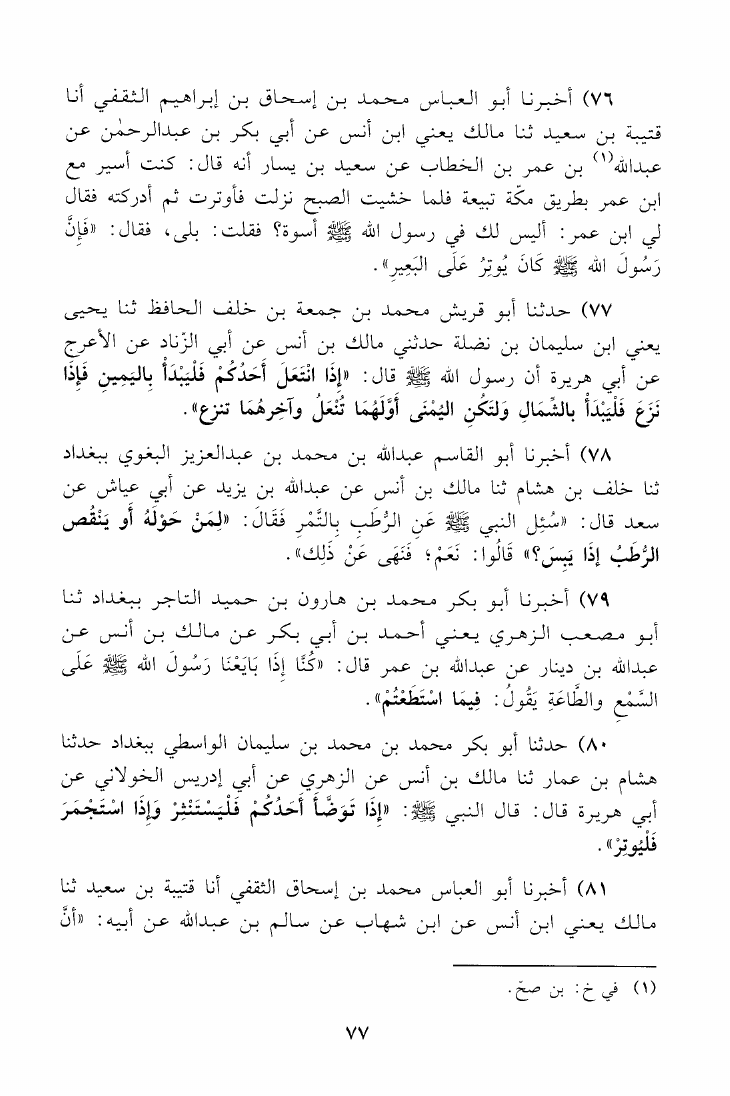 ٧٦) أخبرنا أبو العباس محمد بن إسحاق بن إبراهيم الثقفي أنا
قتيبة بن سعيد ثنا مالك يعني ابن أنس عن أبي بكر بن عبدالرحمٰن عن
عبدالله(١) بن عمر بن الخطاب عن سعيد بن يسار أنه قال: كنت أسير مع
ابن عمر بطريق مكّة تبيعة فلما خشيت الصبح نزلت فأوترت ثم أدركته فقال
لي ابن عمر: أليس لك في رسول الله ﷺ أسوة؟ فقلت: بلى، فقال: «فَإِنَّ
رَسُولَ الله ﷺ كَانَ يُوتِرُ عَلَى البَعِيرِ».
٧٧) حدثنا أبو قريش محمد بن جمعة بن خلف الحافظ ثنا يحيى
يعني ابن سليمان بن نضلة حدثني مالك بن أنس عن أبي الزّناد عن الأعرج
عن أبي هريرة أن رسول الله ﷺ قال: «إِذَا انْتَعَلَ أَحَدُكُمْ فَلْيَبْدَأْ بِاليَمينِ فَإِذَا
نَزَعَ فَلْيَبْدَأْ بالشِّمَالِ وَلتَكُنِ اليُمْنَى أَوَّلَهُمَا تُنْعَلُ وآخِرهُمَا تنزع».
٧٨) أخبرنا أبو القاسم عبدالله بن محمد بن عبدالعزيز البغوي ببغداد
ثنا خلف بن هشام ثنا مالك بن أنس عن عبدالله بن يزيد عن أبي عياش عن
سعد قال: «سُئِل النبي ﷺ عَنِ الرُّطَبِ بِالتَّمْرِ فَقَالَ: «لِمَنْ حَوْلَهُ أَو يَنْقُص
الرُّطَبُ إِذَا يَبِسَ؟» قَالُوا: نَعَمْ؛ فَنَهَى عَنْ ذَلِكَ».
٧٩) أخبرنا أبو بكر محمد بن هارون بن حميد التاجر ببغداد ثنا
أبو مصعب الزهري يعني أحمد بن أبي بكر عن مالك بن أنس عن
عبدالله بن دينار عن عبدالله بن عمر قال: «كُنَّا إِذَا بَايَعْنَا رَسُولَ الله ﷺ عَلَى
السَّمْعِ والطَّاعَةِ يَقُولُ: فِيمَا اسْتَطَعْتُمْ».
٨٠) حدثنا أبو بكر محمد بن محمد بن سليمان الواسطي ببغداد حدثنا
هشام بن عمار ثنا مالك بن أنس عن الزهري عن أبي إدريس الخولاني عن
أبي هريرة قال: قال النبي ﷺ: «إِذَا تَوَضَّأَ أَحَدُكُمْ فَلْيَسْتَنْثِرْ وَإِذَا اسْتَجْمَرَ
فَلْيُوتِرْ».
٨١) أخبرنا أبو العباس محمد بن إسحاق الثقفي أنا قتيبة بن سعيد ثنا
مالك يعني ابن أنس عن ابن شهاب عن سالم بن عبدالله عن أبيه: «أنَّ
(١) في خ: بن صحّ.
٧٧